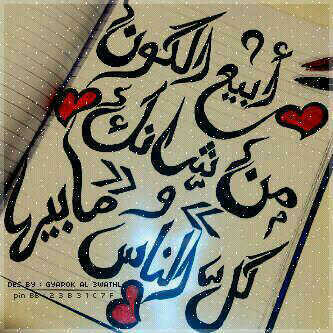 أبيع الكون
من شانك
و مابيها
كل الناس
DES BY : GYAROK AL 3WATHL
pin BB : 2 3 B 3 1 C 7 F